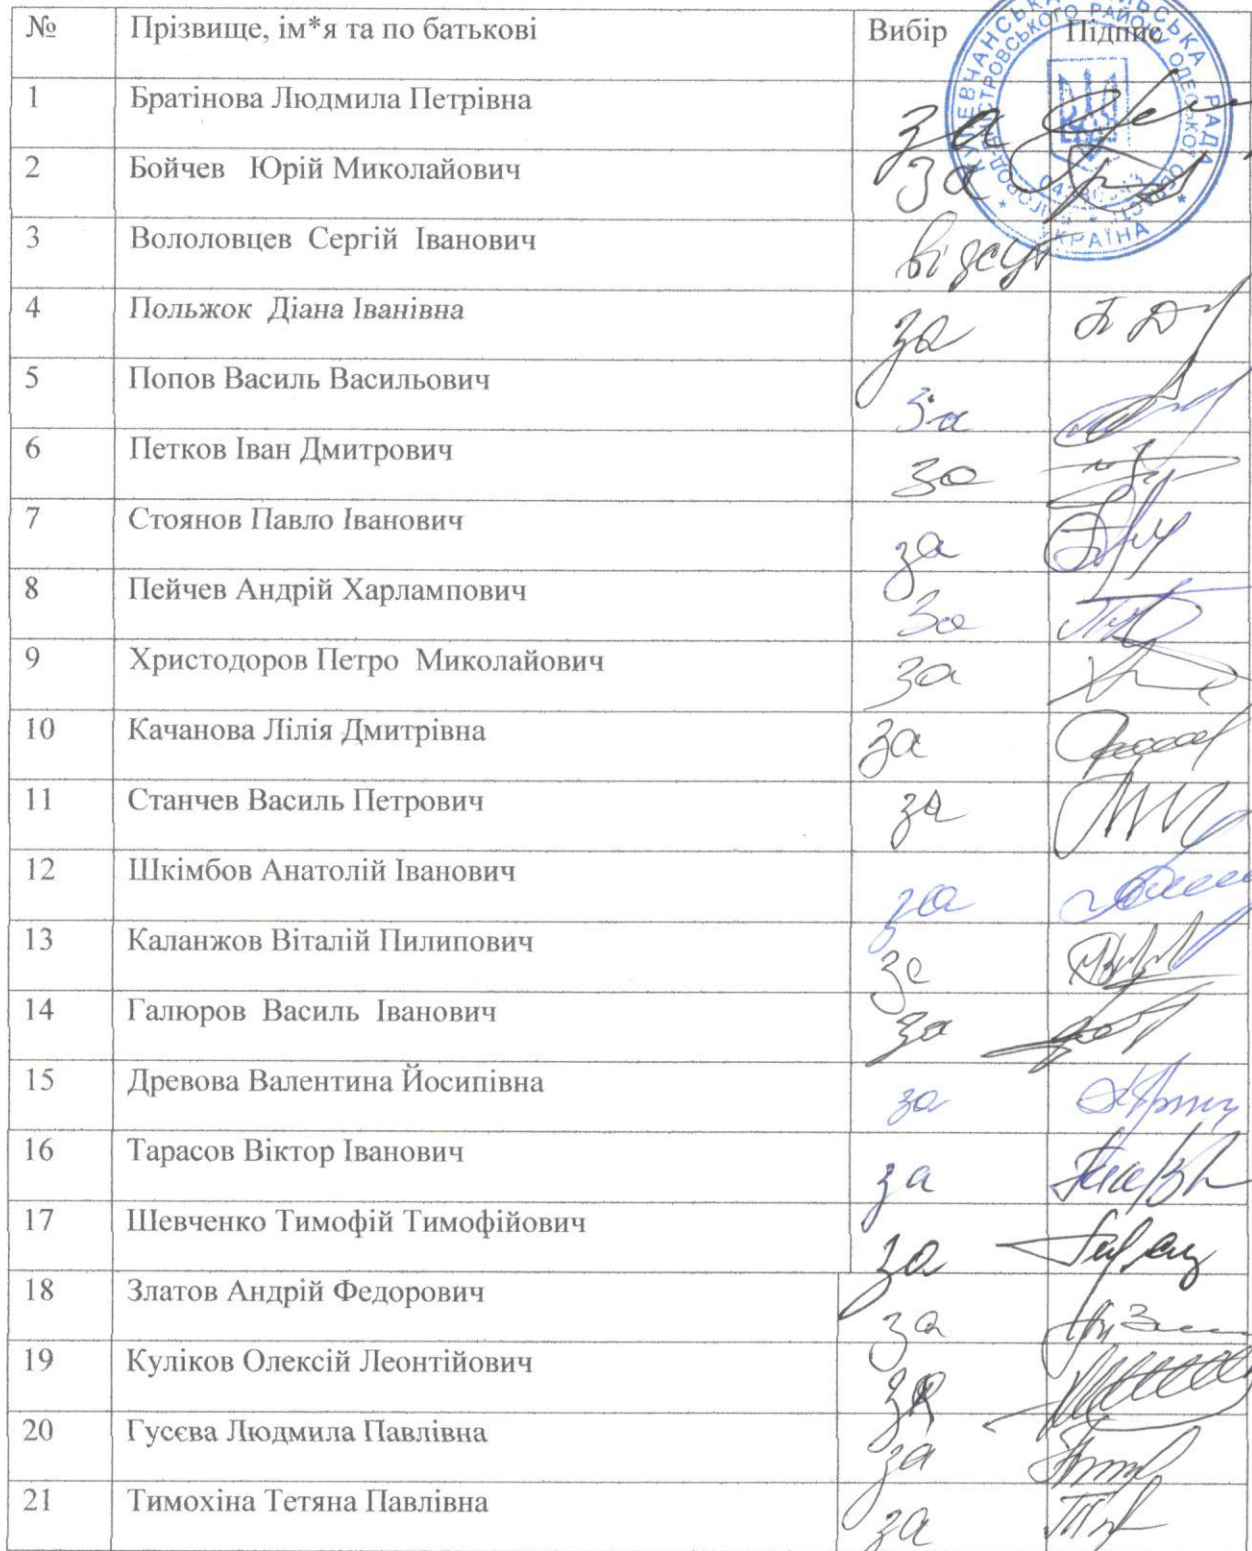 № Прізвище, ім*я та по батькові Вибір Підпис
1 Братінова Людмила Петрівна за
2 Бойчев Юрій Миколайович за
3 Вололовцев Сергій Іванович відсут
4 Польжок Діана Іванівна за
5 Попов Василь Васильович за
6 Петков Іван Дмитрович за
7 Стоянов Павло Іванович за
8 Пейчев Андрій Харлампович за
9 Христодоров Петро Миколайович за
10 Качанова Лілія Дмитрівна за
11 Станчев Василь Петрович за
12 Шкімбов Анатолій Іванович за
13 Каланжов Віталій Пилипович за
14 Галюров Василь Іванович за
15 Древова Валентина Йосипівна за
16 Тарасов Віктор Іванович за
17 Шевченко Тимофій Тимофійович за
18 Златов Андрій Федорович за
19 Куліков Олексій Леонтійович за
20 Гусєва Людмила Павлівна за
21 Тимохіна Тетяна Павлівна за
РАДА
РАЙОНУ ОДЕСЬКОЇ
УКРАЇНА